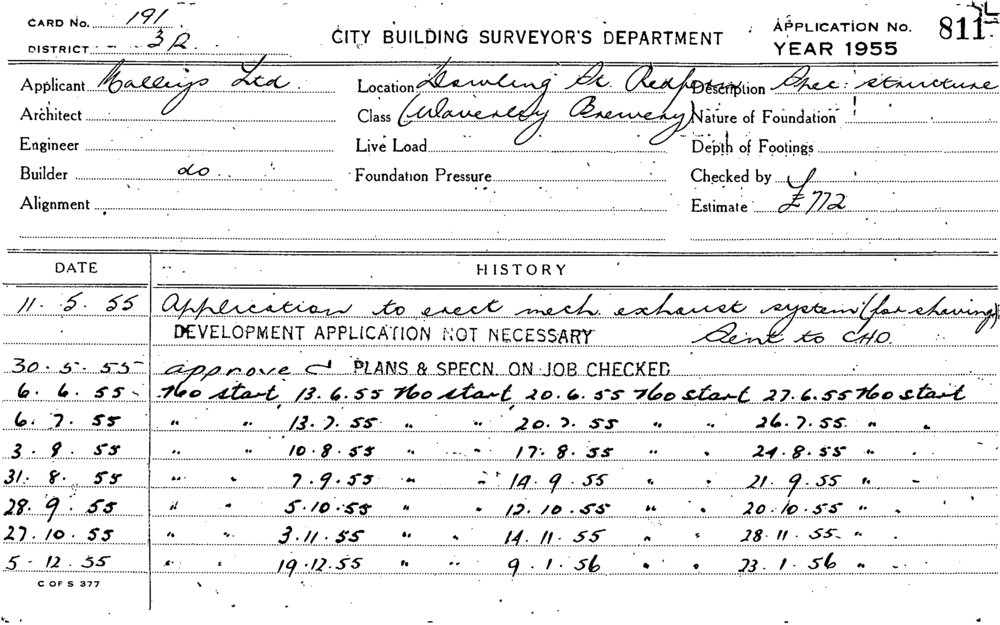 CARD No. 191
DISTRICT 3R
CITY BUILDING SURVEYOR'S DEPARTMENT
APPLICATION No. 811
YEAR 1955
Applicant Malleys Ltd Location Dowling St. Redfern Description Spec. structure
Architect Class (Waverley Brewery) Nature of Foundation
Engineer Live Load Depth of Footings
Builder do Foundation Pressure Checked by
Alignment Estimate £772
DATE HISTORY
11. 5. 55 Application to erect mech. exhaust system (for shaving)
DEVELOPMENT APPLICATION NOT NECESSARY Sent to CHO.
30. 5. 55 approved PLANS & SPECN. ON JOB CHECKED
6. 6. 55 No start, 13.6.55 No start, 20.6.55 No start 27.6.55 No start
6. 7. 55 " " 13.7.55 " " 20.7.55 " " 26.7.55 " "
3. 8. 55 " " 10.8.55 " " 17.8.55 " " 24.8.55 " "
31. 8. 55 " " 7.9.55 " " 14.9.55 " " 21.9.55 " "
28. 9. 55 " " 5.10.55 " " 12.10.55 " " 20.10.55 " "
27.10.55 " " 3.11.55 " " 14.11.55 " " 28.11.55 " "
5-12.55 " " 19.12.55 " " 9.1.56 " " 23.1.56 " "
C OF S 377